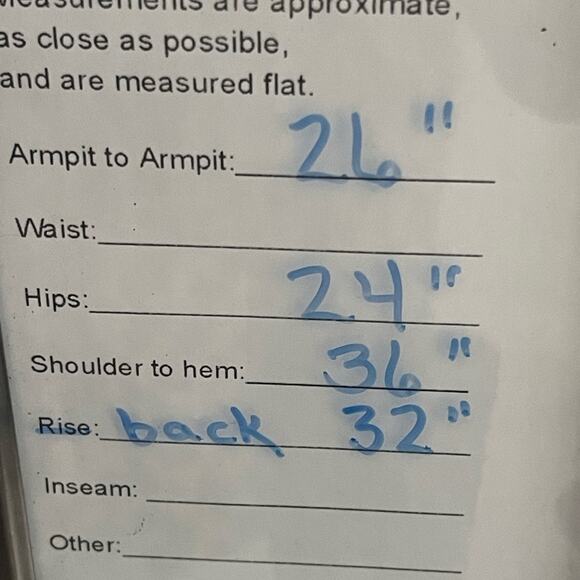 Measurements are approximate,
as close as possible,
and are measured flat.
Armpit to Armpit: 26"
Waist:
Hips: 24"
Shoulder to hem: 36"
Rise: back 32"
Inseam:
Other: